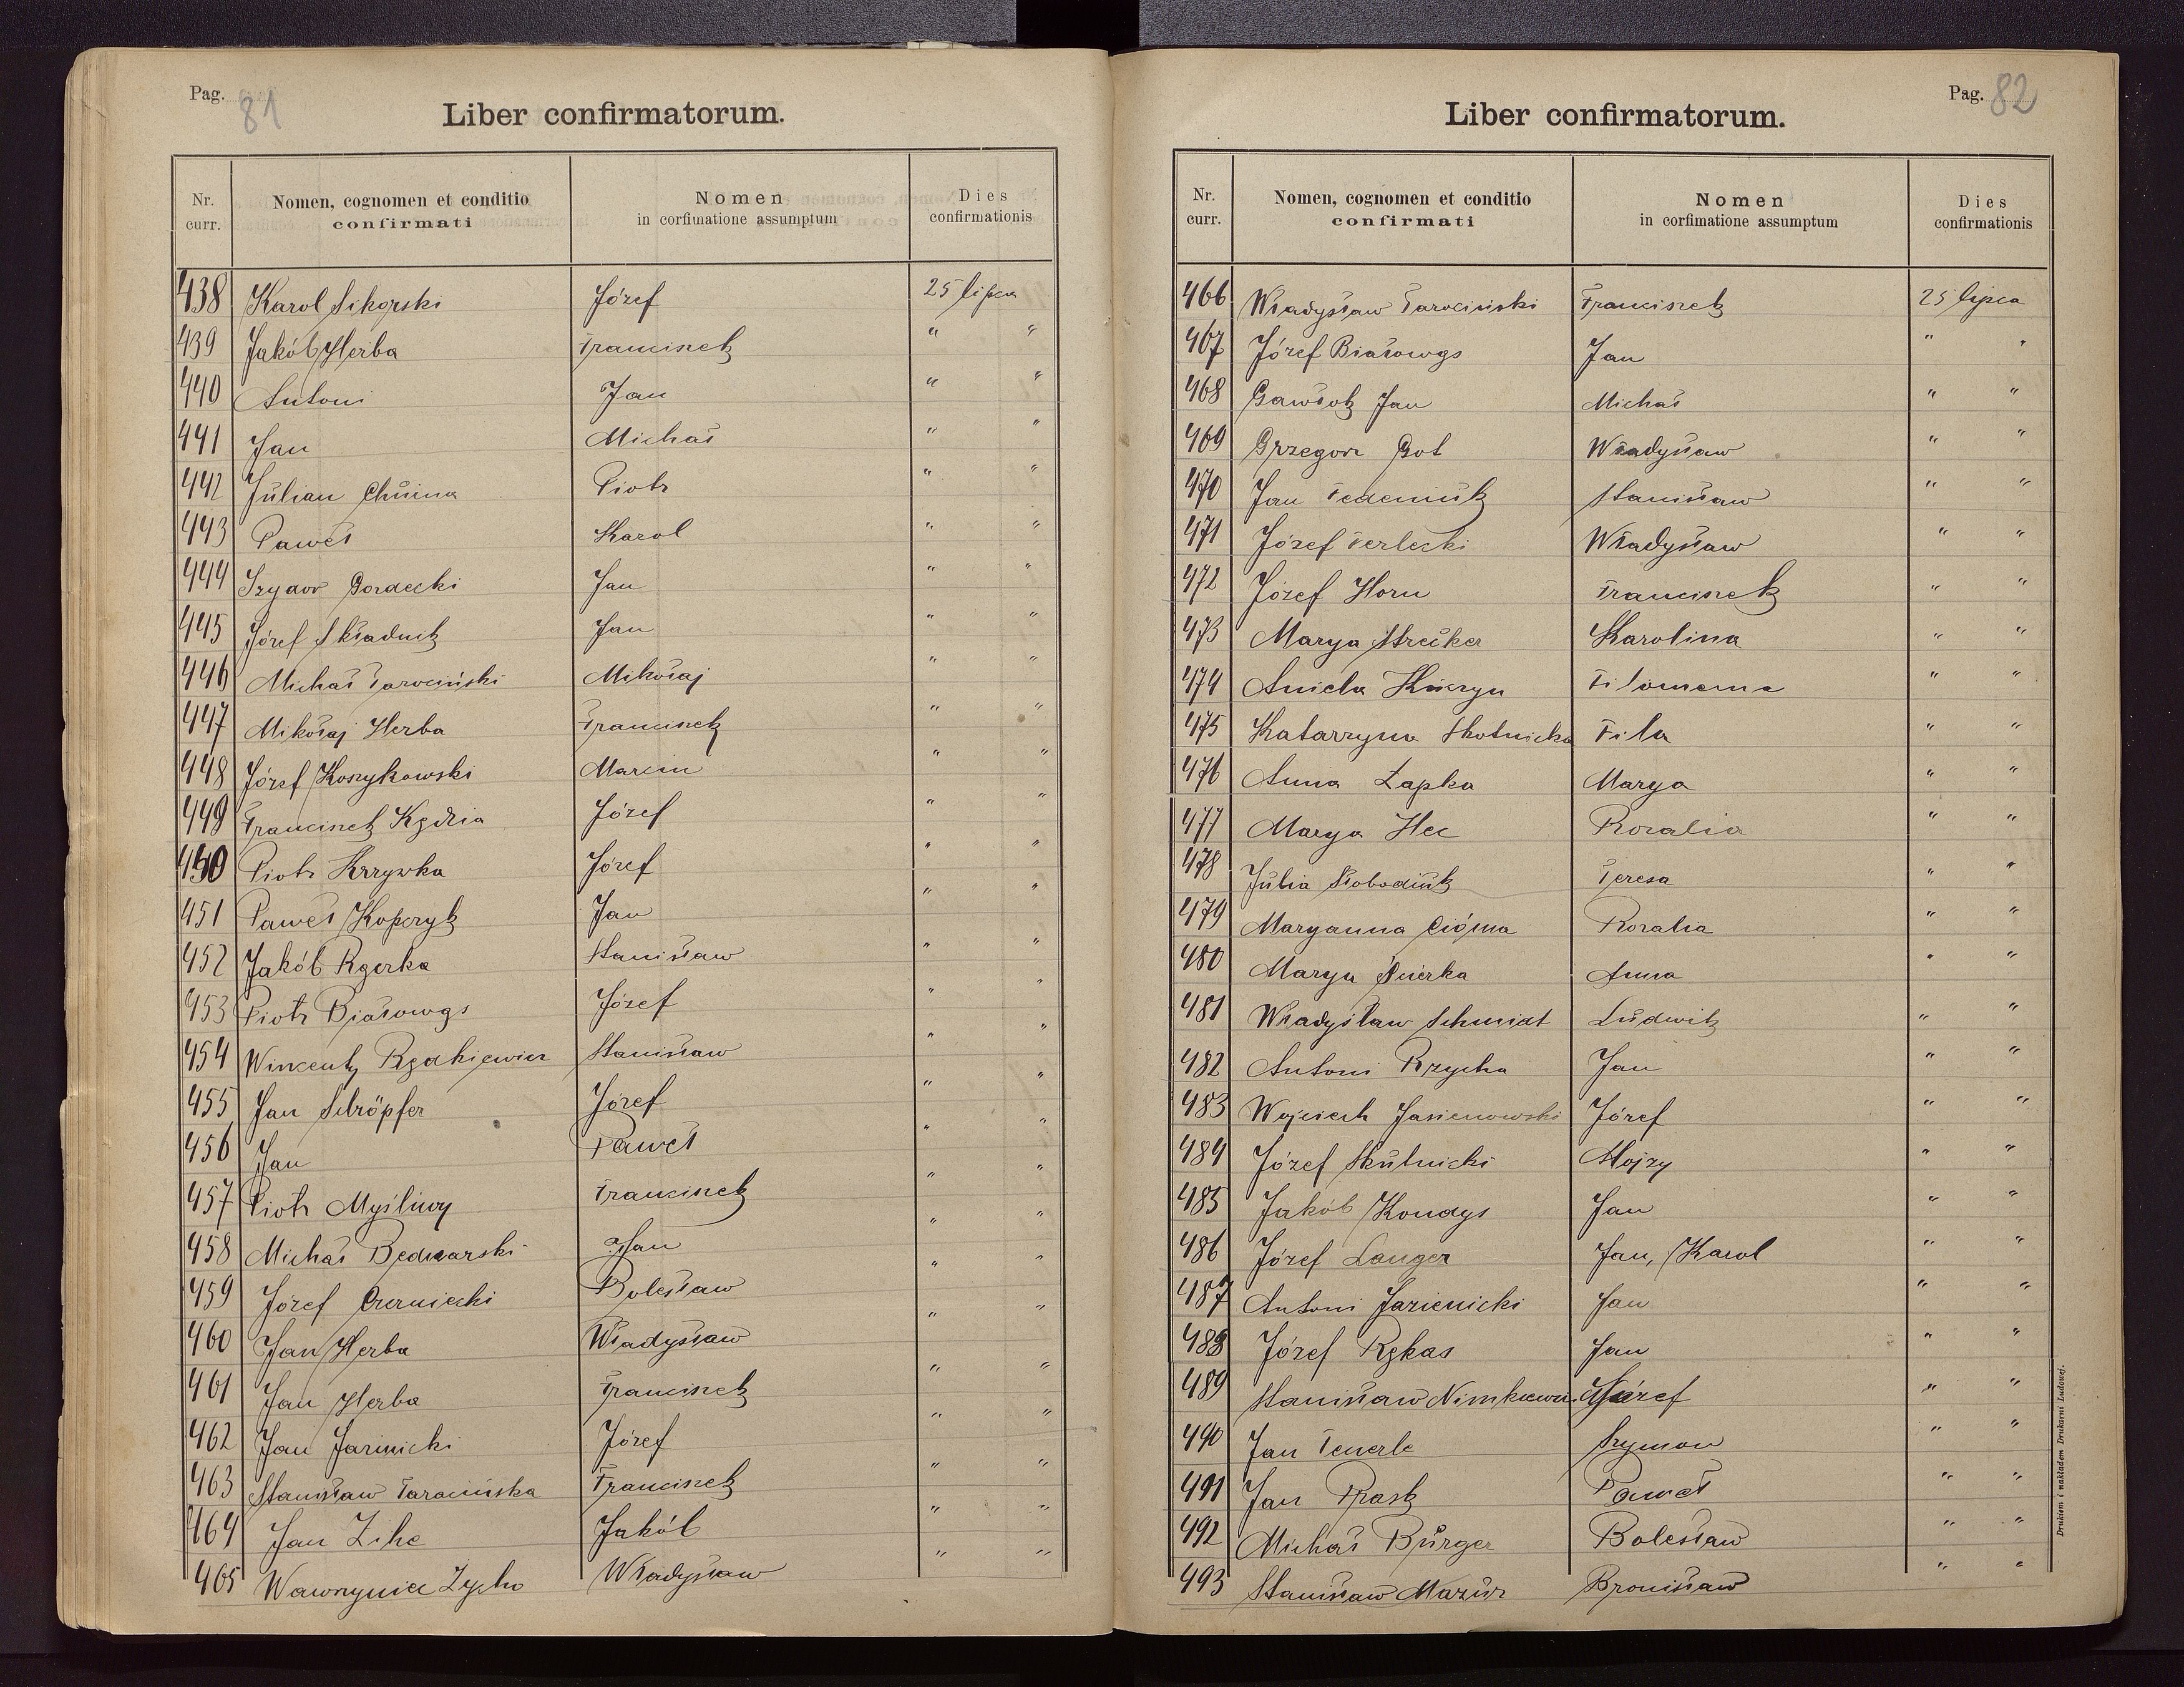 Pag. 81
Liber confirmatorum.
Nr. curr. Nomen, cognomen et conditio confirmati Nomen in corfimatione assumptum Dies confirmationis
438 Karol Sikorski Józef 25 lipca
439 Jakób Herba Franciszek " "
440 Antoni Jan " "
441 Jan Michał " "
442 Julian Piotr " "
443 Paweł Karol " "
444 Gordecki Jan " "
445 Józef Składnik Jan " "
446 Michał Tarociński Mikołaj " "
447 Mikołaj Herba Franciszek " "
448 Józef Koszykowski Marcin " "
449 Franciszek Kędzia Józef " "
450 Piotr Krzywka Józef " "
451 Paweł Kopczyk Jan " "
452 Jakób Stanisław " "
453 Piotr Białowąs Józef " "
454 Wincenty Stanisław " "
455 Jan Schröpfer Józef " "
456 Jan Paweł " "
457 Piotr Myśliwy Franciszek " "
458 Michał Bednarski Jan " "
459 Józef Czerniecki Bolesław " "
460 Jan Herba Władysław " "
461 Jan Herba Franciszek " "
462 Jan Józef " "
463 Stanisław Tarocińska Franciszek " "
464 Jan Jakób " "
465 Wawrzyniec Zycho Władysław
Pag. 82
Liber confirmatorum.
Nr. curr. Nomen, cognomen et conditio confirmati Nomen in corfimatione assumptum Dies confirmationis
466 Władysław Tarociński Franciszek 25 lipca
467 Józef Białowąs Jan " "
468 Gawlok Jan Michał " "
469 Grzegorz Got Władysław " "
470 Jan Stanisław " "
471 Józef Terlecki Władysław " "
472 Józef Horn Franciszek " "
473 Marya Karolina " "
474 Aniela Filomena " "
475 Katarzyna Skotnicka Fila " "
476 Anna Łapka Marya " "
477 Marya Hec Rozalia " "
478 Julia Słobodiuk Teresa " "
479 Maryanna Rozalia " "
480 Marya Anna " "
481 Władysław Schmidt Ludwik " "
482 Antoni Rzycha Jan " "
483 Wojciech Jasienowski Józef " "
484 Józef Skulnicki Alojzy " "
485 Jakób Kondys Jan " "
486 Józef Langer Jan, Karol " "
487 Antoni Jazienicki Jan " "
488 Józef Rękas Jan " "
489 Stanisław Józef " "
490 Jan Szymon " "
491 Jan Paweł " "
492 Michał Bürger Bolesław " "
493 Stanisław Mazur Bronisław " "
Drukiem i nakładem Drukarni Ludowej.